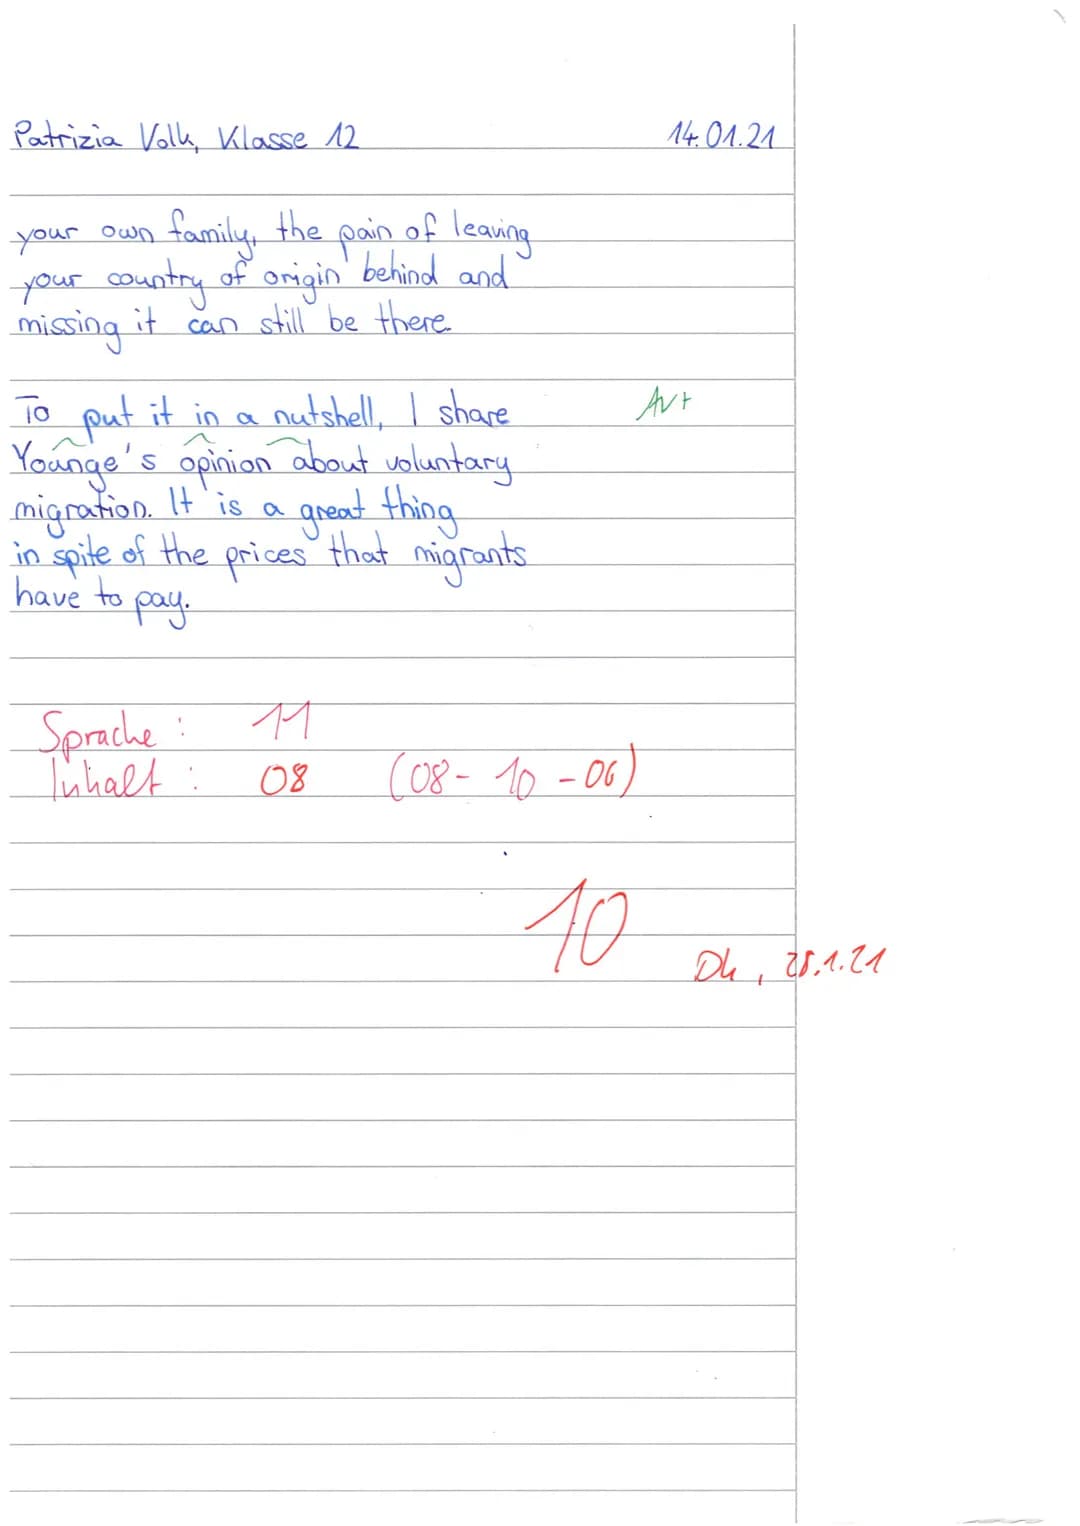 Patrizia Volk, Klasse 12 14.01.21
your own family, the pain of leaving
your country of origin behind and
missing it can still be there.
To put it in a nutshell, I share AV+
Younge's opinion about voluntary
migration. It is a great thing
in spite of the prices that migrants
have to pay.
Sprache: 11
Inhalt: 08 (08-10-06)
10
Dh, 28.1.21